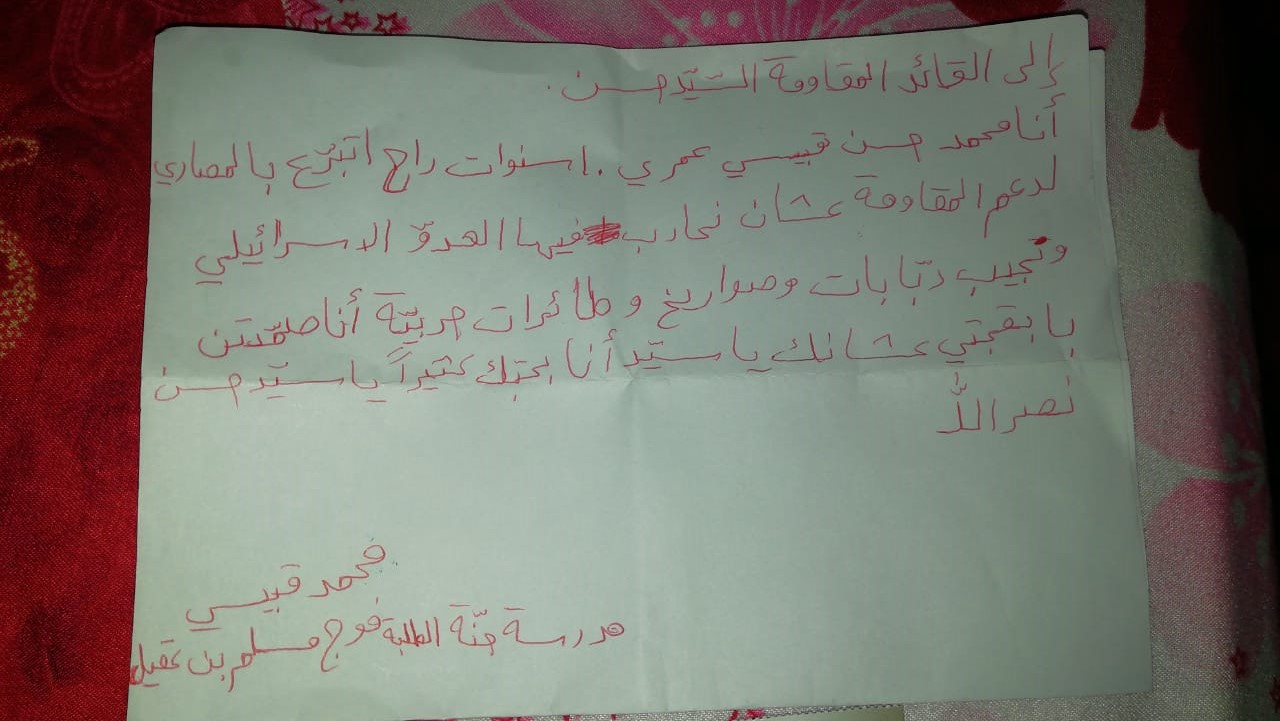 إلى القائد المقاومة السيّد حسن.
أنا محمد حسن قبيسي عمري ١٠ سنوات راح اتبرّع بالمصاري
لدعم المقاومة عشان نحارب فيها العدوّ الاسرائيلي
وتجيب دبّابات وصواريخ و طائرات حربيّة أنا صمّمتن
عشانك يا سيّد أنا بحبّك كثيراً يا سيّد حسن
نصر اللّٰه
محمد قبيسي
مدرسة جنّة الطلبة فوج مسلم بن عقيل